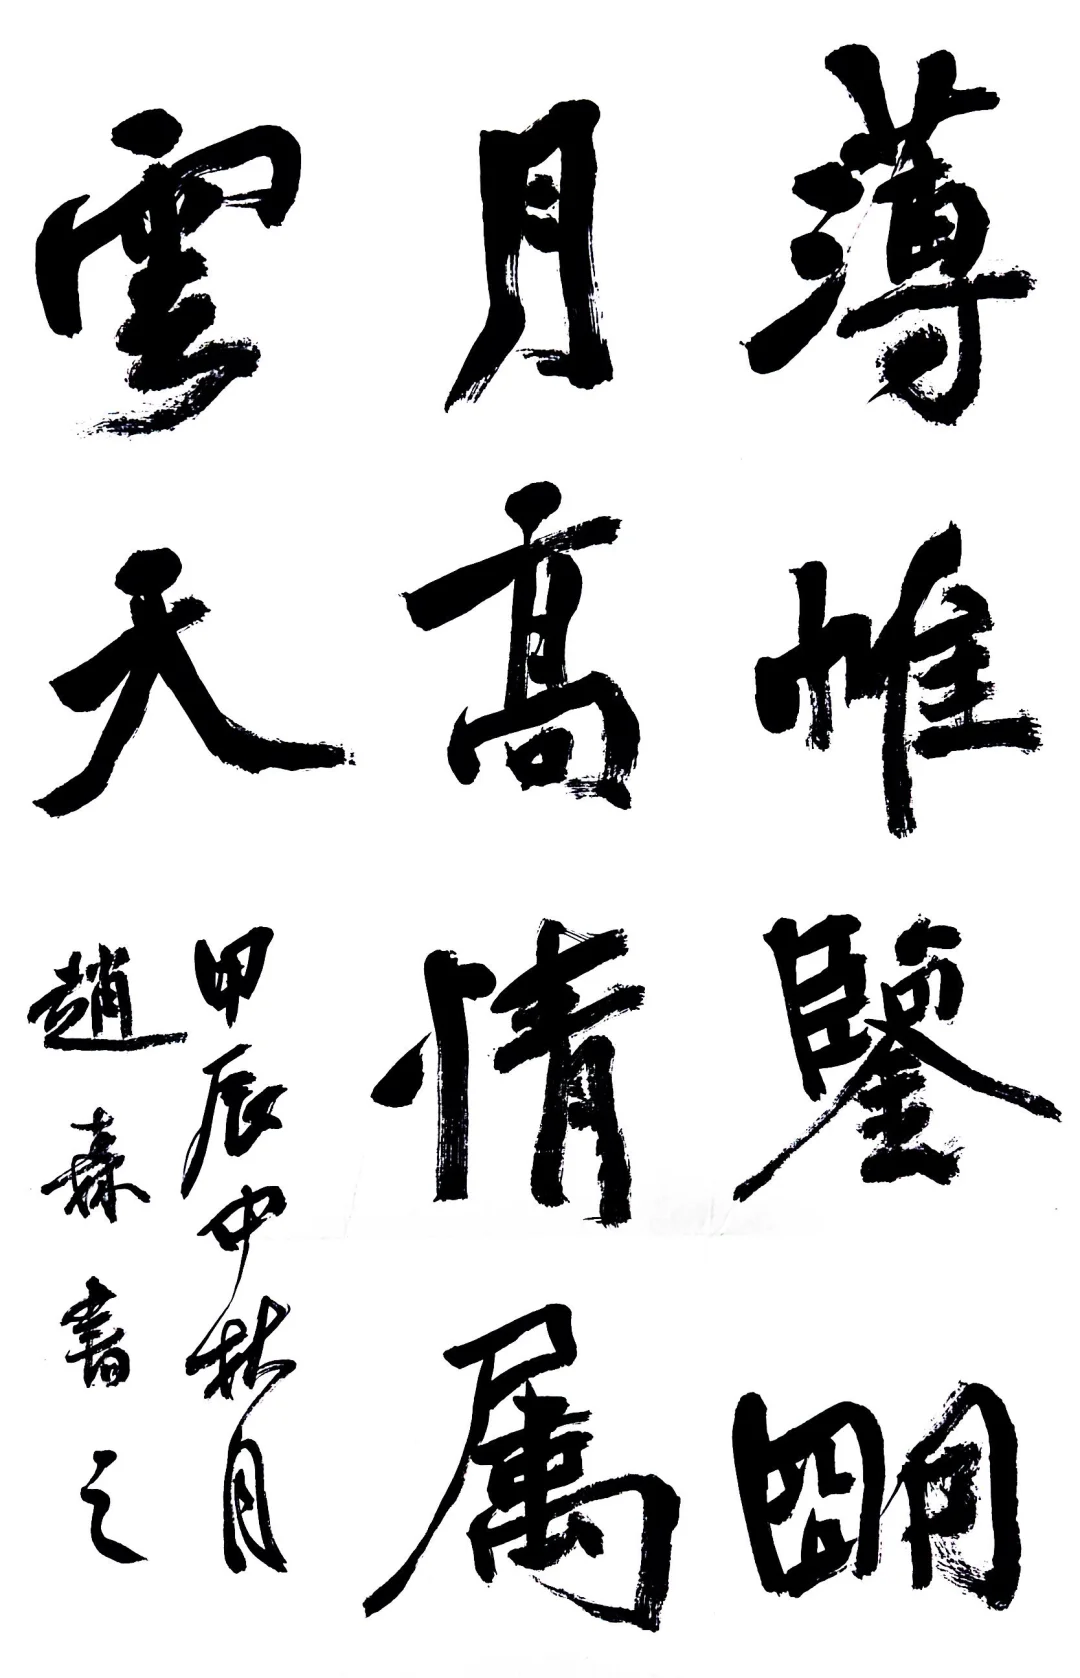 薄帷鑒朙
月高情属
雲天
甲辰中秋月
趙森書之